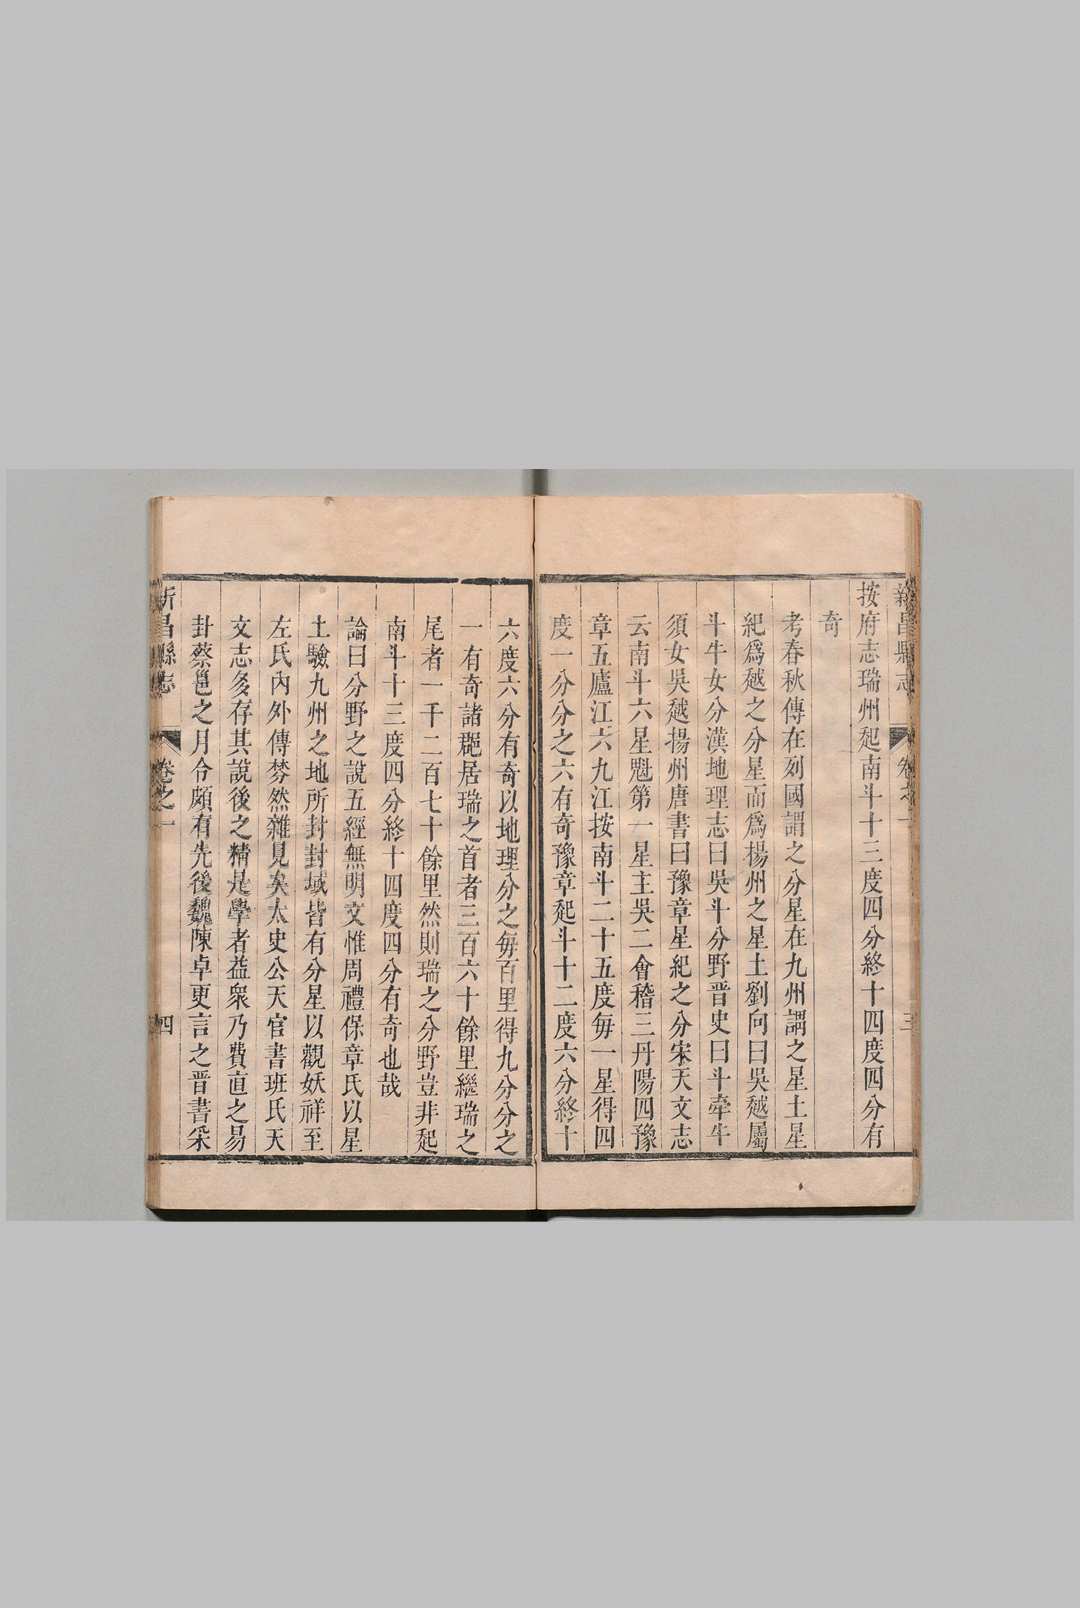 新昌縣志 卷之一 三
按府志瑞州起南斗十三度四分終十四度四分有
奇
考春秋傳在列國謂之分星在九州謂之星土星
紀爲越之分星而爲楊州之星土劉向曰吳越屬
斗牛女分漢地理志曰吳斗分野晋史曰斗牽牛
須女吳越揚州唐書曰豫章星紀之分宋天文志
云南斗六星魁第一星主吳二會稽三丹陽四豫
章五廬江六九江按南斗二十五度毎一星得四
度一分分之六有奇豫章起斗十二度六分終十
六度六分有奇以地理分之毎百里得九分分之
一有奇諸郡居瑞之首者三百六十餘里繼瑞之
尾者一千二百七十餘里然則瑞之分野豈非起
南斗十三度四分終十四度四分有奇也哉
論曰分野之說五經無明文惟周禮保章氏以星
土驗九州之地所封封域皆有分星以觀妖祥至
左氏內外傳棼然雜見矣太史公天官書班氏天
文志多存其說後之精是學者益衆乃費直之易
卦蔡邕之月令頗有先後魏陳卓更言之晋書采
新昌縣志 卷之一 四